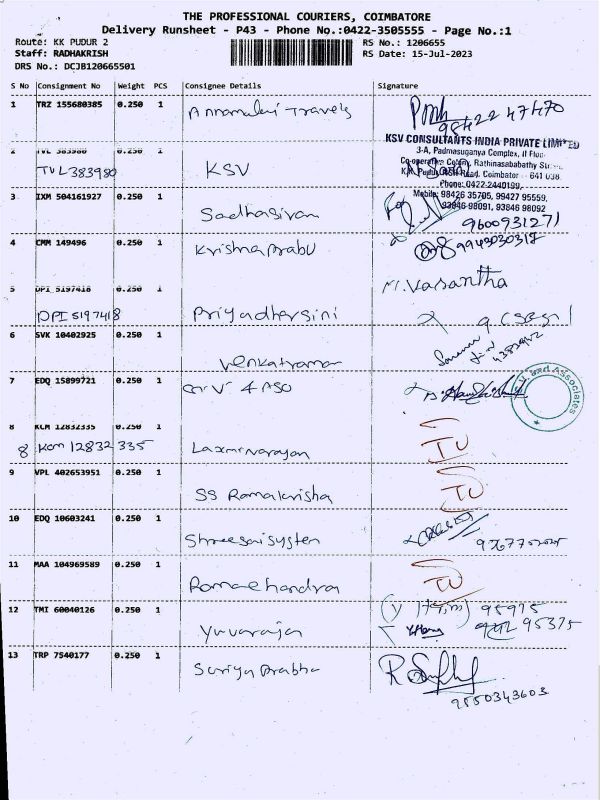 THE PROFESSIONAL COURIERS, COIMBATORE
Delivery Runsheet - P43 - Phone No.:0422-3505555 - Page No.:1
Route: KK PUDUR 2 RS No.: 1206655
Staff: RADHAKRISH RS Date: 15-Jul-2023
DRS No.: DCJB120665501
S No Consignment No Weight PCS Consignee Details Signature
1 TRZ 155680385 0.250 1 Annamalai Travels 98422 47470
KSV CONSULTANTS INDIA PRIVATE LIMITED
3-A, Padmasuganya Complex, II Floor
2 TVL 383980 0.250 1 Co-operative Colony, Rathinasabapathy
TVL383980 KSV K.K. Pudur, Road, Coimbator - 641 038.
Phone: 0422-2440199,
3 IXM 504161927 0.250 1 Mobile: 98426 35705, 99427 95559,
93846 98091, 93846 98092
Sadhasivam 9600931271
4 CMM 149496 0.250 1 Krishnaprabu
5 DPI 5197418 0.250 1 M. Vasantha
DPI 5197418 Priyadharsini
6 SVK 10402925 0.250 1
Venkatraman
7 EDQ 15899721 0.250 1 Associates
8 KCM 12832335 0.250 1
8 Kcm 12832 335 Laxminarayan
9 VPL 402653951 0.250 1
SS Ramakrisha
10 EDQ 10603241 0.250 1
Shreesaisysten
11 MAA 104969589 0.250 1
Ramachandra
12 TMI 60040126 0.250 1 95975
Yuvaraja 95375
13 TRP 7540177 0.250 1
Suriya prabha
9550343603